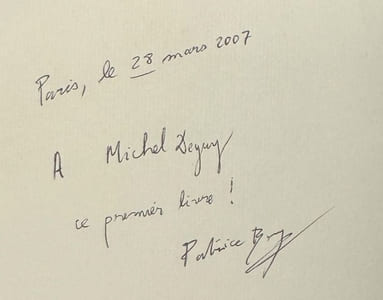 Paris, le 28 mars 2007
A Michel Deguy
ce premier livre !
Patrice